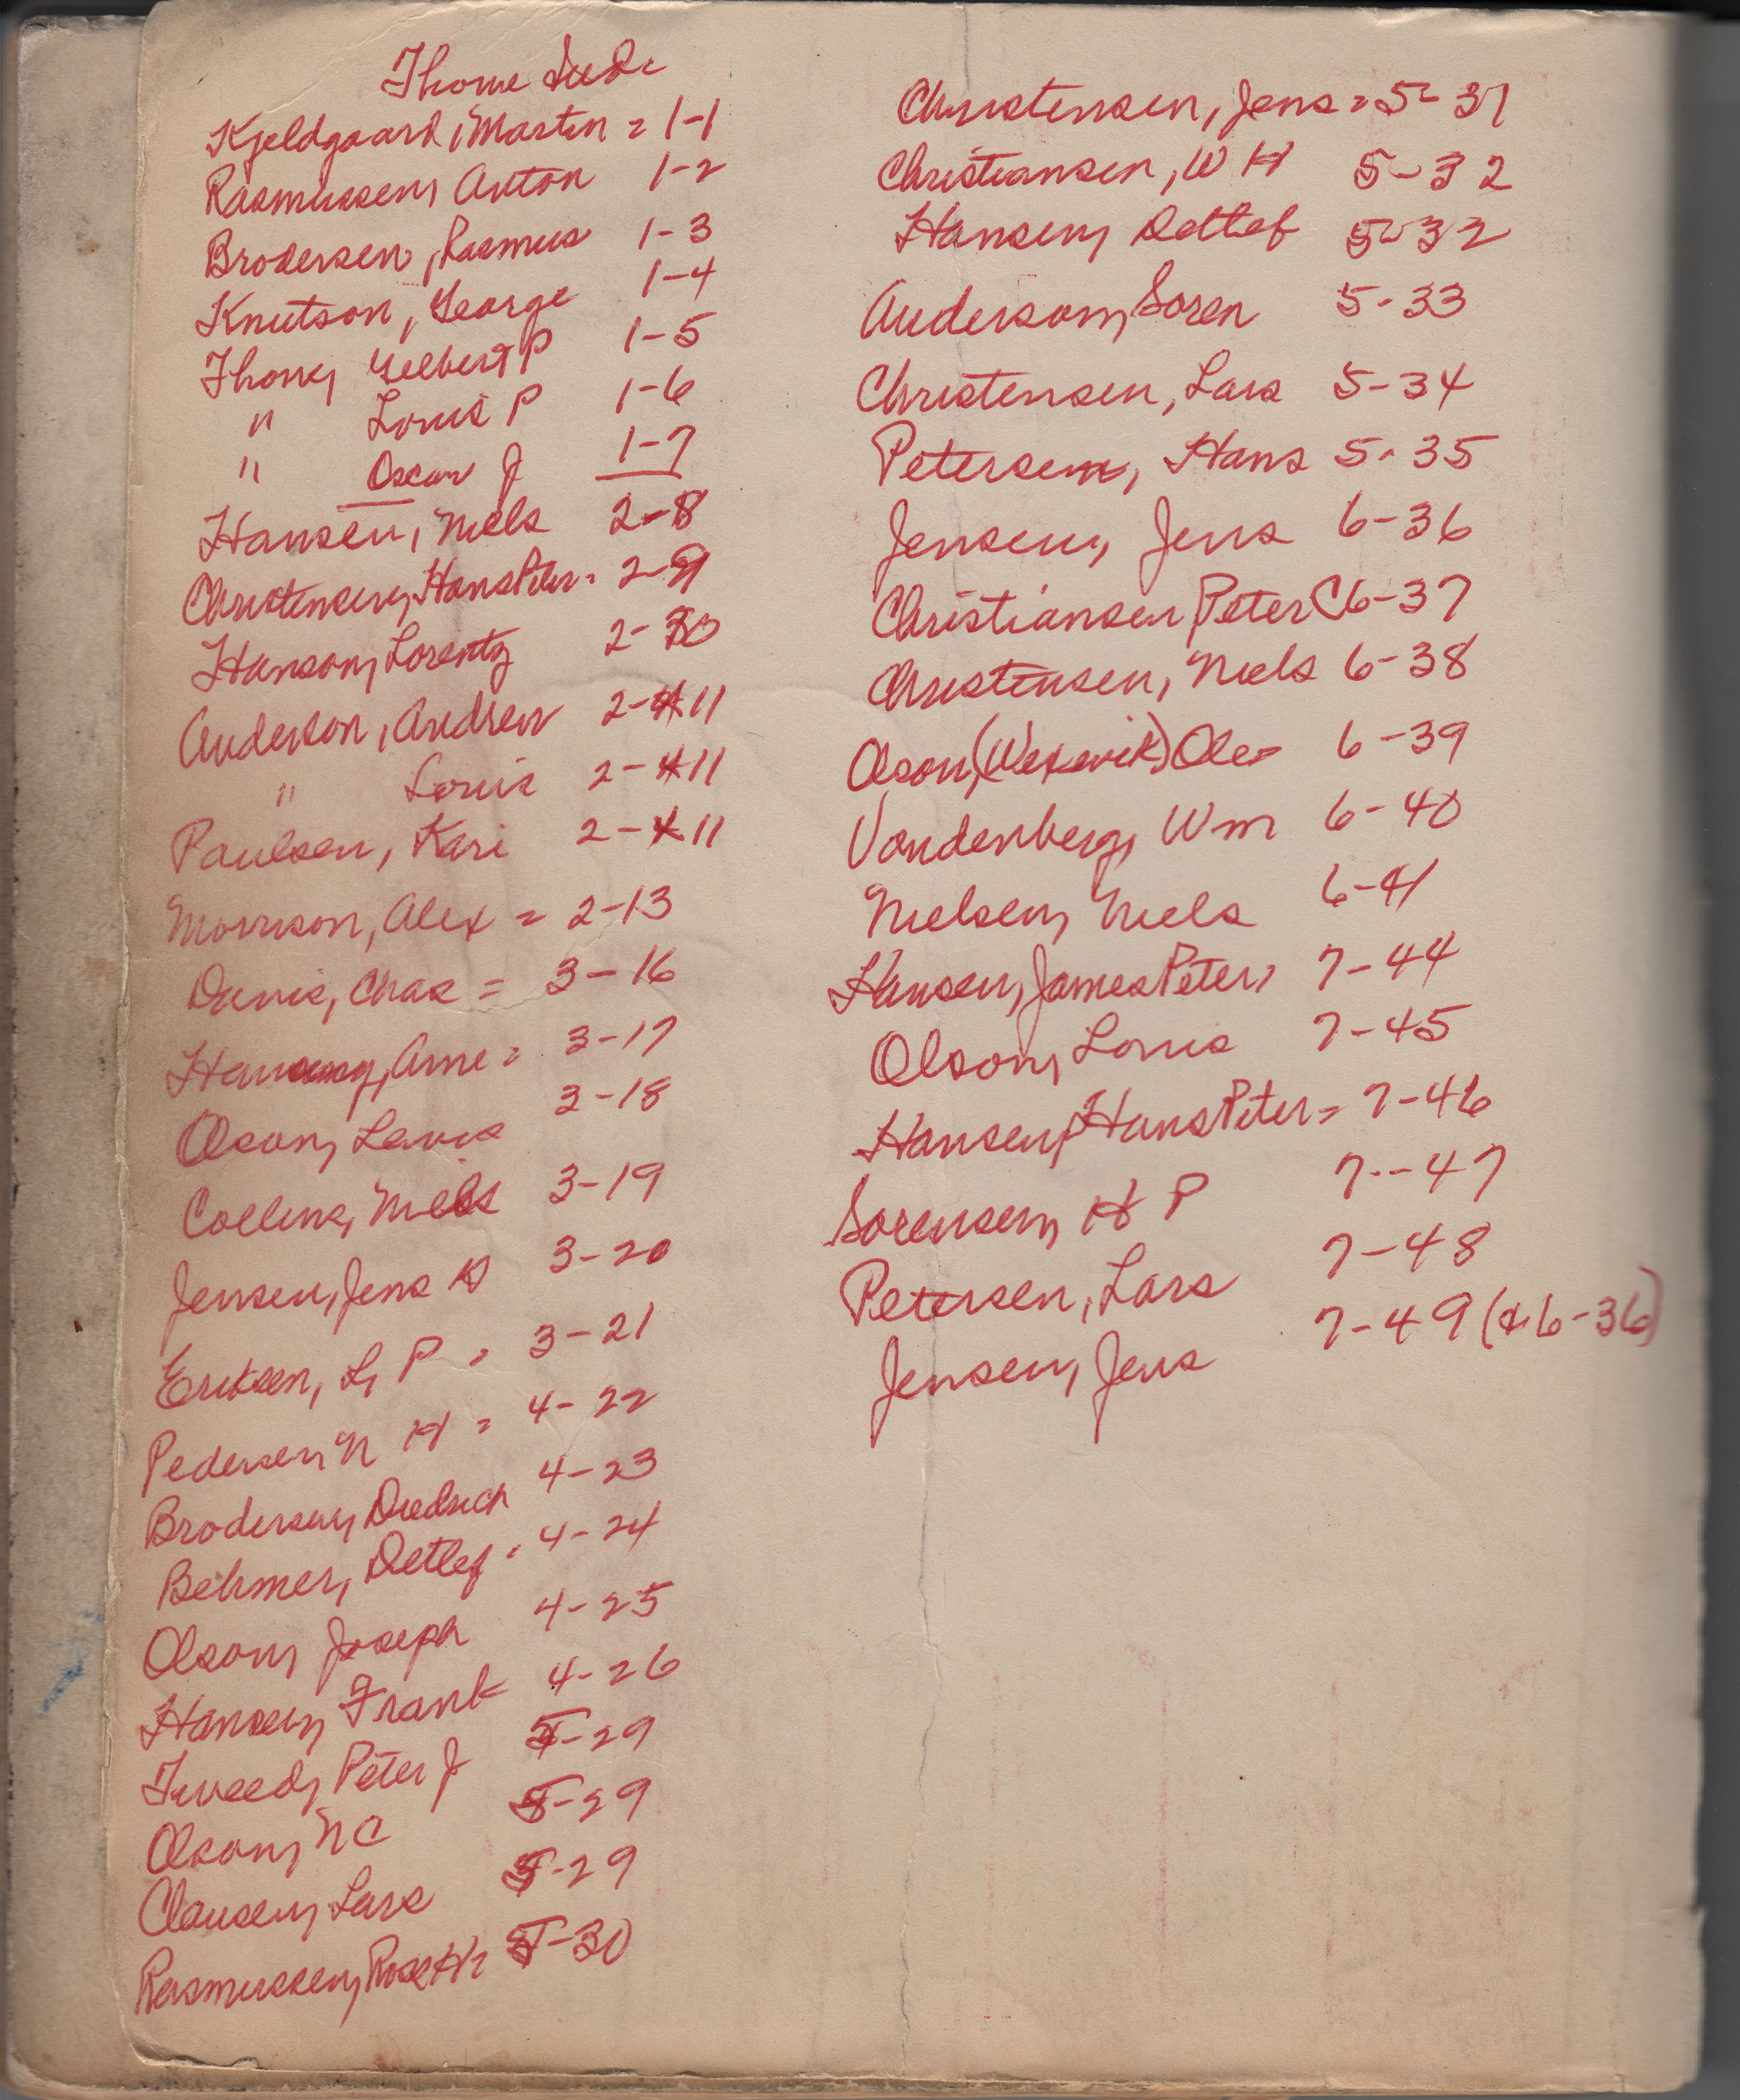 Thome
Kjeldgaard, Martin = 1-1
Rasmussen, Anton 1-2
Brodersen, Rasmus 1-3
Knutson, George 1-4
Thom, Gilbert P 1-5
" Louis P 1-6
" Oscar J 1-7
Hansen, Niels 2-8
Christensen, Hans Peter = 2-9
Hanson, Lorentz 2-10
Anderson, Andrew 2-11
" Louis 2-11
Paulsen, Kari 2-11
Morrison, Alex = 2-13
Davis, Chas = 3-16
Arne = 3-17
Olson, Lewis 3-18
Collins, Niels 3-19
Jensen, Jens 3-20
Eriksen, L, P = 3-21
Pedersen, N H = 4-22
Brodersen, Diedrich 4-23
Behmer, Detlef = 4-24
Olson, Joseph 4-25
Hansen, Frank 4-26
Tweed, Peter J 5-29
Olson, N C 5-29
Clausen, Lars 5-29
Rasmussen, 5-30
Christensen, Jens = 5-31
Christiansen, W H 5-32
Hansen, Detlef 5-32
Anderson, Soren 5-33
Christensen, Lars 5-34
Petersen, Hans 5-35
Jensen, Jens 6-36
Christiansen, Peter C 6-37
Christensen, Niels 6-38
Olson, (Wexevik) Ole = 6-39
Vandenberg, Wm 6-40
Nielsen, Niels 6-41
Hansen, James Peter, 7-44
Olson, Louis 7-45
Hansen, Hans Peter = 7-46
Sorensen, H P 7--47
Petersen, Lars 7-48
Jensen, Jens 7-49 (& 6-36)